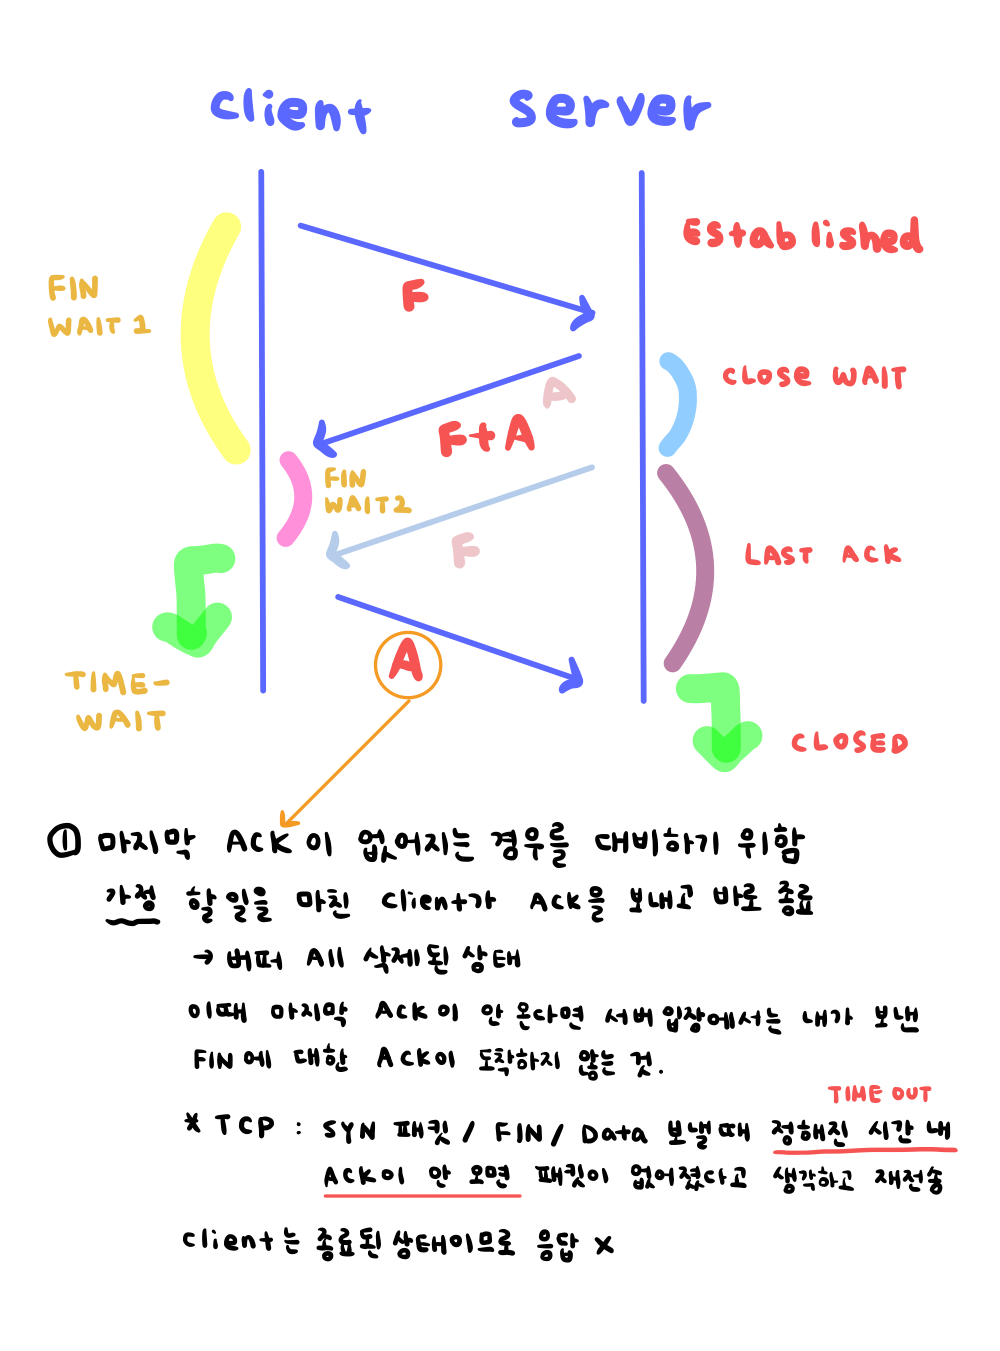 client server
Established
FIN
WAIT 1
F
CLOSE WAIT
A
F+A
FIN
WAIT2
F
LAST ACK
A
TIME-
WAIT
CLOSED
① 마지막 ACK이 없어지는 경우를 대비하기 위함
가정 할일을 마친 client가 ACK을 보내고 바로 종료
→ 버퍼 All 삭제된 상태
이때 마지막 ACK이 안 온다면 서버 입장에서는 내가 보낸
FIN에 대한 ACK이 도착하지 않는 것.
TIME OUT
* TCP : SYN 패킷 / FIN / Data 보낼때 정해진 시간 내
ACK이 안 오면 패킷이 없어졌다고 생각하고 재전송
client는 종료된 상태이므로 응답 x